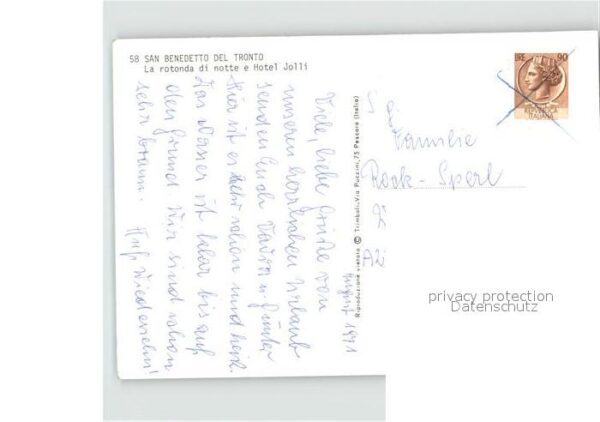 58 SAN BENEDETTO DEL TRONTO
La rotonda di notte e Hotel Jolli
Viele, liebe Grüße von
unserem herrlichen Urlaub
senden Euch
Hier ist es sehr schön und heiß.
Das Wasser ist klar bis auf
den Grund. Wir sind schon
sehr braun.
Auf Wiedersehn!
August 1971
Riproduzione vietata © Trimboli, Via Puccini, 75 Pescara (Italia)
LIRE 90
ITALIANA
Familie
Rock-Sperl
privacy protection
Datenschutz